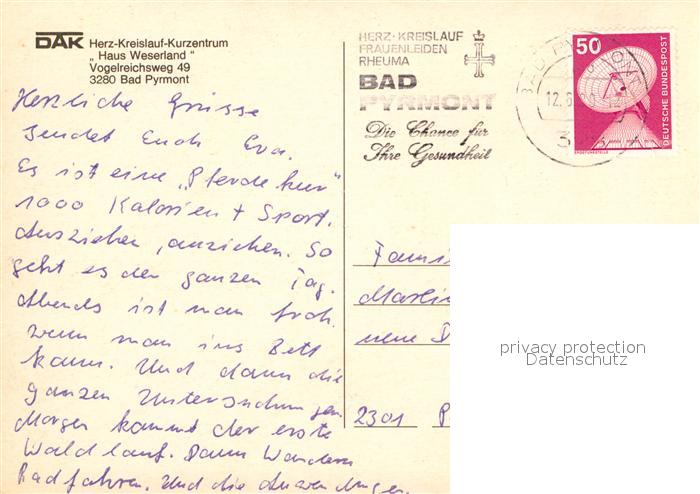 DAK Herz-Kreislauf-Kurzentrum
„Haus Weserland"
Vogelreichsweg 49
3280 Bad Pyrmont
Herzliche Grüsse
sendet Euch Eva.
Es ist eine „Pferdekur"
1000 Kalorien + Sport.
Ausziehen, anziehen. So
geht es den ganzen Tag.
Abends ist man froh,
wenn man ins Bett
kann. Und dann die
ganzen Untersuchungen.
Morgen kommt der erste
Waldlauf. Dann Wandern
Radfahren. Und die Anwendungen.
HERZ-KREISLAUF
FRAUENLEIDEN
RHEUMA
BAD
PYRMONT
Die Chance für
Ihre Gesundheit
BAD PYRMONT
12.6
3
50
DEUTSCHE BUNDESPOST
ERDEFUNKSTELLE
Famil
neue
2301
privacy protection
Datenschutz